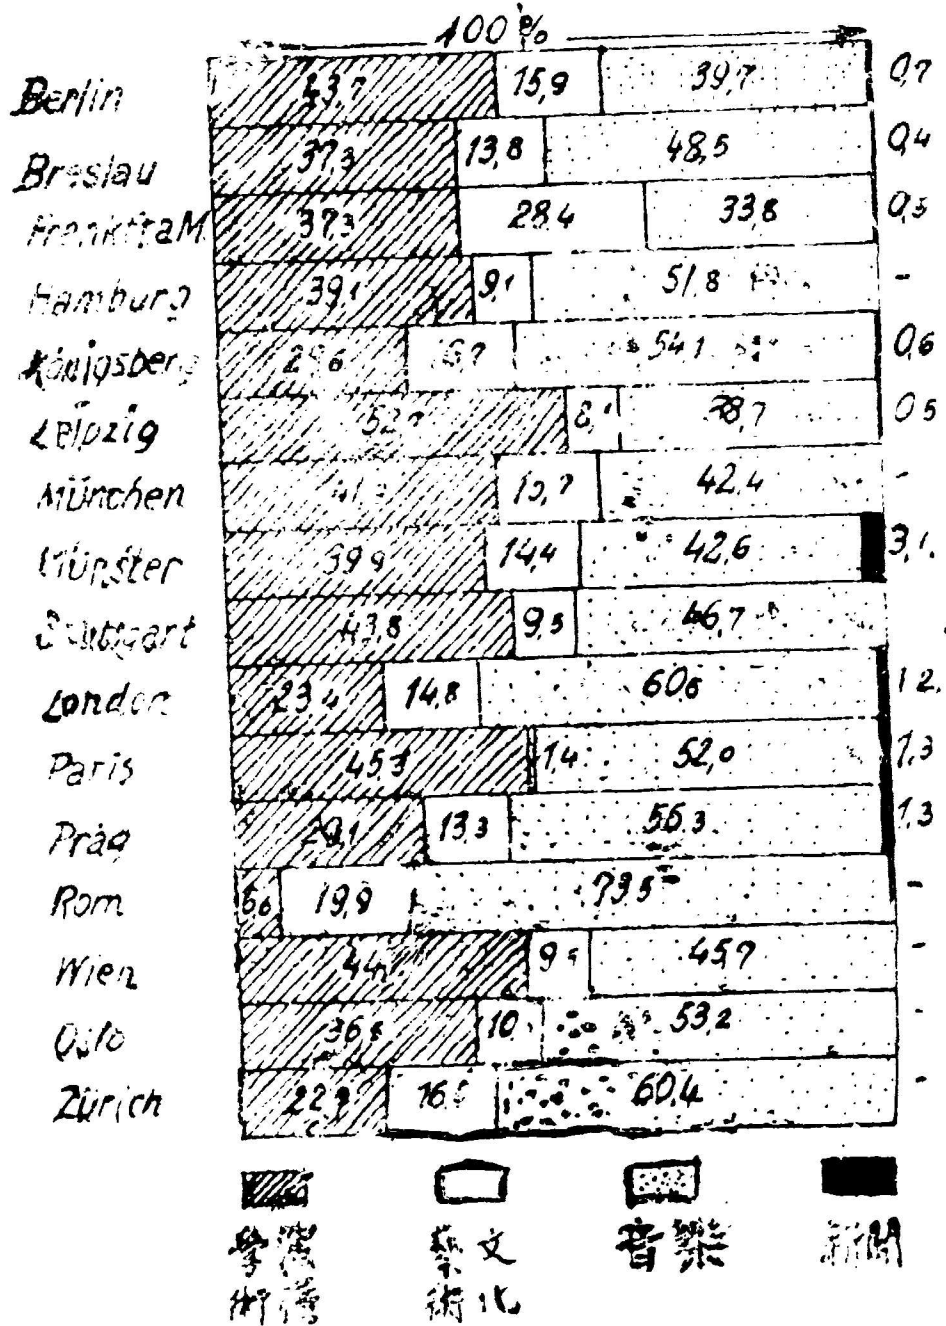 100%
Berlin 43,7 15,9 39,7 0,7
Breslau 37,3 13,8 48,5 0,4
FrankftaM. 37,3 28,4 33,8 0,5
Hamburg 39,1 9,1 51,8 -
Königsberg 16,7 54,1 0,6
Leipzig 8,1 38,7 0,5
München 42,4 -
Münster 39,9 14,4 42,6 3,1
Stuttgart 43,8 9,5 46,7
London 23,4 14,8 60,6 1,2
Paris 45,3 1,4 52,0 1,3
Prag 29,1 13,3 56,3 1,3
Rom 6,6 19,9 73,5 -
Wien 45,7 -
Oslo 53,2 -
Zürich 60,4 -
學術 藝術文化 音樂 新聞